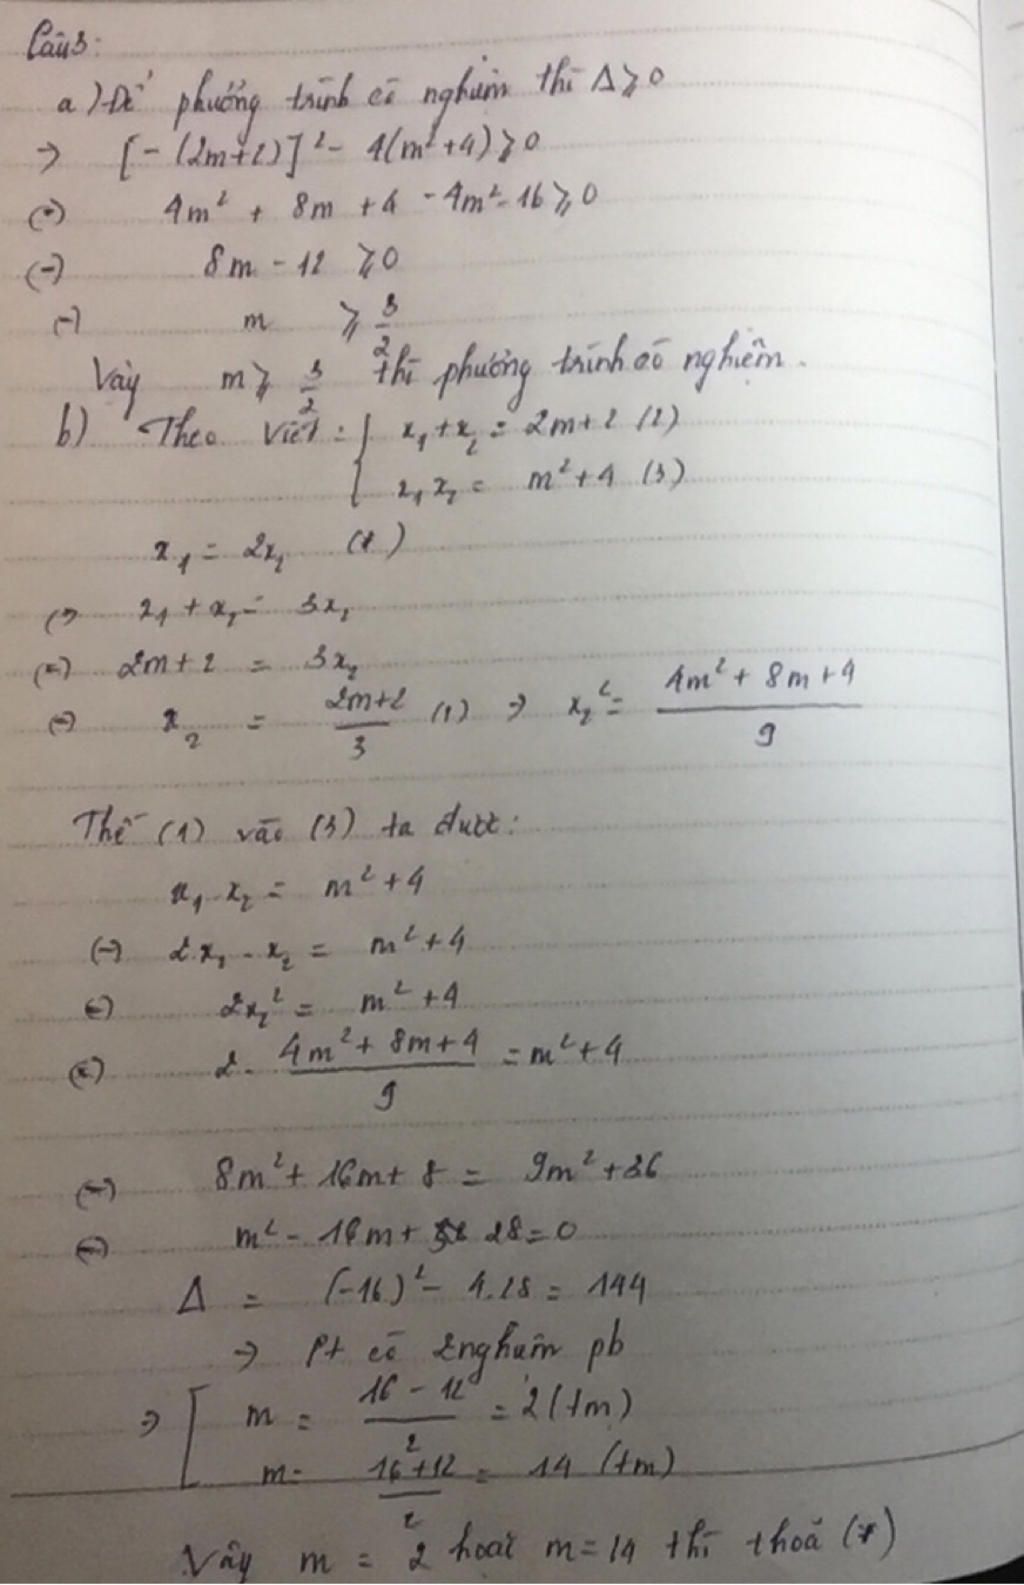 Câu 3:
a) Để phương trình có nghiệm thì Δ ≥ 0
→ [-(2m+2)]² - 4(m²+4) ≥ 0
(=) 4m² + 8m + 4 - 4m² - 16 ≥ 0
(=) 8m - 12 ≥ 0
(=) m ≥ 3/2
Vậy m ≥ 3/2 thì phương trình có nghiệm.
b) Theo Viét: { x₁ + x₂ = 2m+2 (2)
x₁ x₂ = m²+4 (3)
x₁ = 2x₂ (*)
(=) x₁ + x₂ = 3x₂
(=) 2m+2 = 3x₂
(=) x₂ = (2m+2)/3 (1) → x₂² = (4m² + 8m + 4)/9
Thế (1) vào (3) ta được:
x₁ . x₂ = m² + 4
(=) 2.x₂ . x₂ = m² + 4
(=) 2x₂² = m² + 4
(=) 2 . (4m² + 8m + 4)/9 = m² + 4
(=) 8m² + 16m + 8 = 9m² + 36
(=) m² - 16m + 28 = 0
Δ = (-16)² - 4.28 = 144
→ Pt có 2 nghiệm pb
→ [ m = (16 - 12)/2 = 2 (tm)
m = (16 + 12)/2 = 14 (tm)
Vậy m = 2 hoặc m = 14 thì thoả (*)